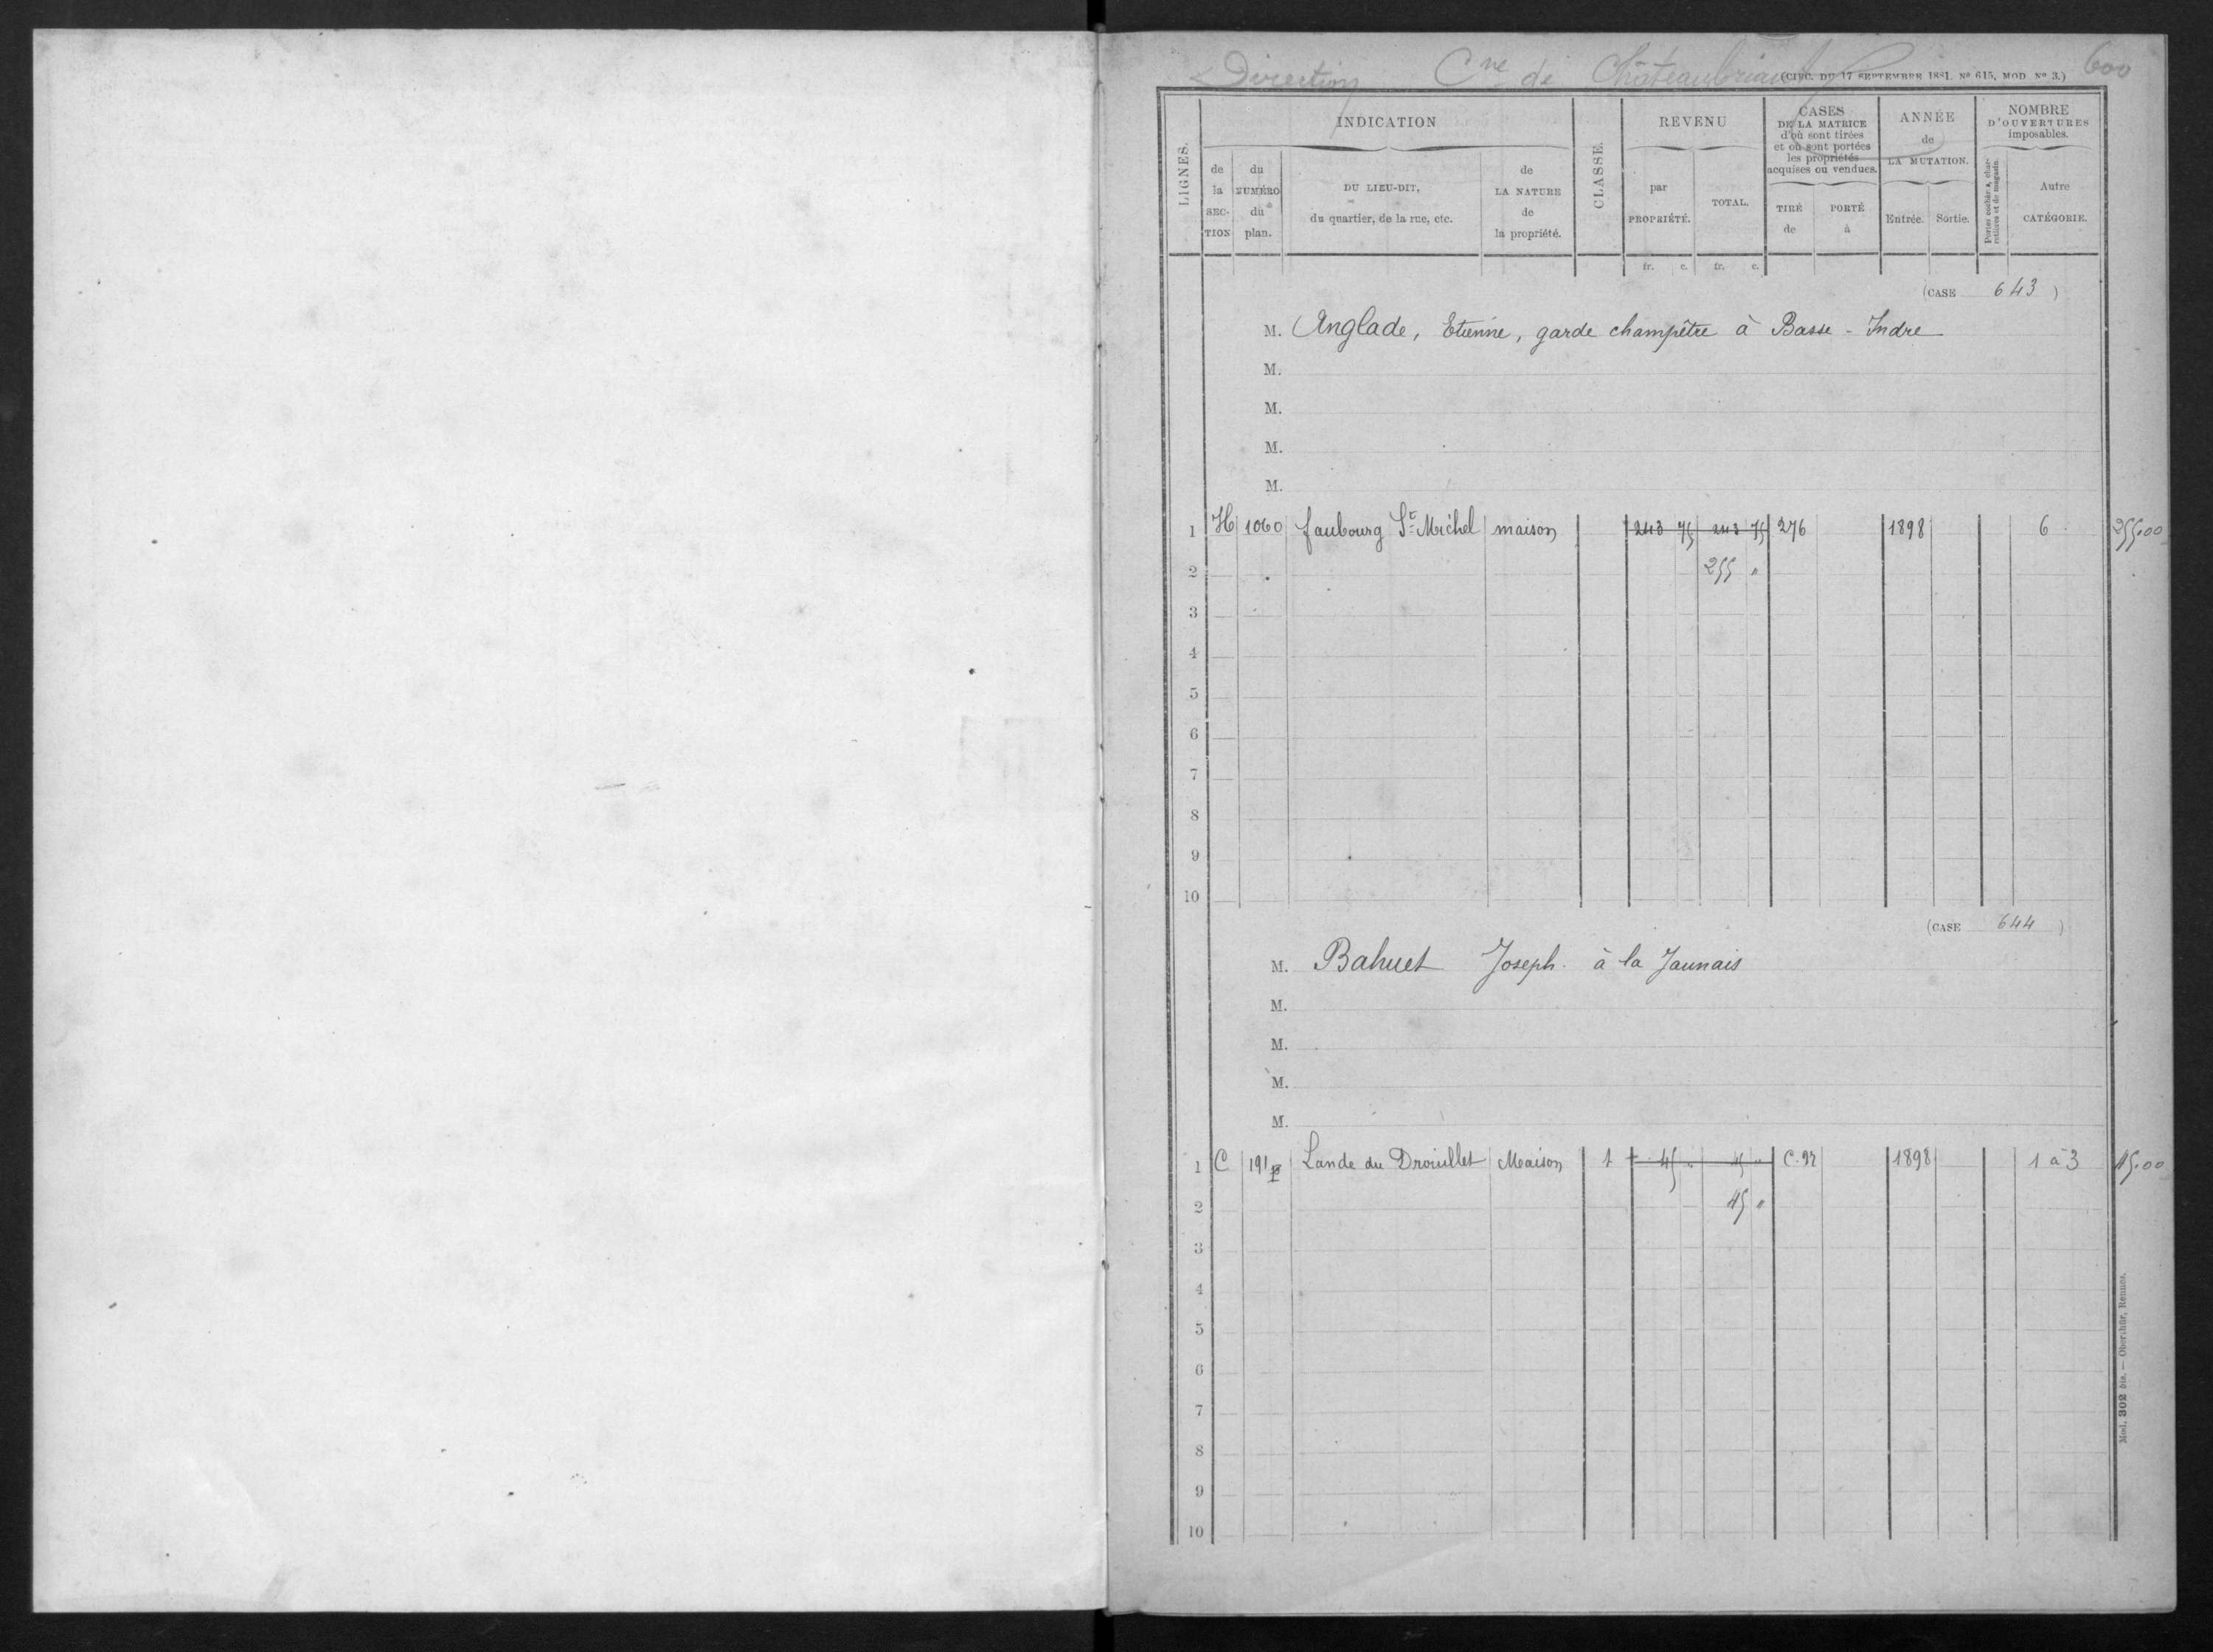 Direction Cne de Châteaubriant 600
(CIRC. DU 17 SEPTEMBRE 1881, No 615, MOD No 3.)
LIGNES. INDICATION CLASSE. REVENU CASES DE LA MATRICE d'où sont tirées et où sont portées les propriétés acquises ou vendues. ANNÉE de LA MUTATION. NOMBRE D'OUVERTURES imposables.
de la SECTION du NUMÉRO du plan. DU LIEU-DIT, du quartier, de la rue, etc. de LA NATURE de la propriété. par PROPRIÉTÉ. TOTAL. TIRÉ de PORTÉ à Entrée. Sortie. Portes cochères, charretières et de magasin. Autre CATÉGORIE.
fr. c. fr. c.
(CASE 643 )
M. Anglade, Etienne, garde champêtre à Basse-Indre
M.
M.
M.
M.
1 H 1060 faubourg St Michel maison 243 75 243 75 276 1898 6 255.00
2 255 "
3
4
5
6
7
8
9
10
(CASE 644 )
M. Bahuet Joseph à la Jaunais
M.
M.
M.
M.
1 C 191p Lande du Drouillet Maison 1 45 " 45 " C. 92 1898 1 à 3 45.00
2 45 "
3
4
5
6
7
8
9
10
Mod. 302 bis. — Oberthür, Rennes.